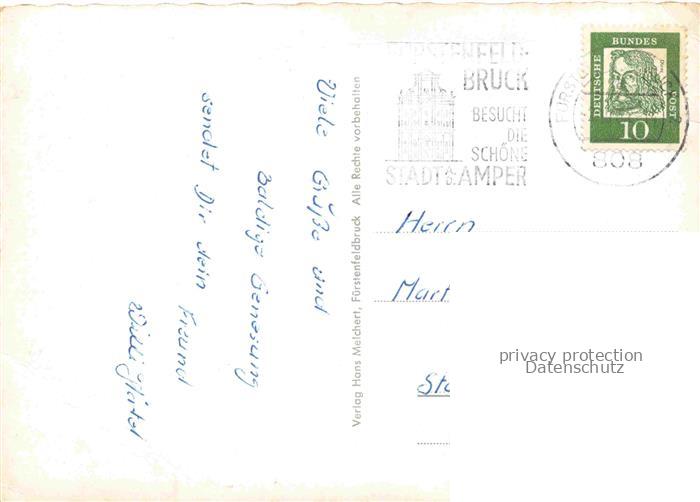 Viele Grüße und
baldige Genesung
sendet Dir dein
Freund
Willi
Verlag Hans Melchert, Fürstenfeldbruck Alle Rechte vorbehalten
FÜRSTENFELD-
BRUCK
BESUCHT
DIE
SCHÖNE
STADT a.d. AMPER
808
DEUTSCHE BUNDESPOST
10
Herrn
Mart
privacy protection
Datenschutz